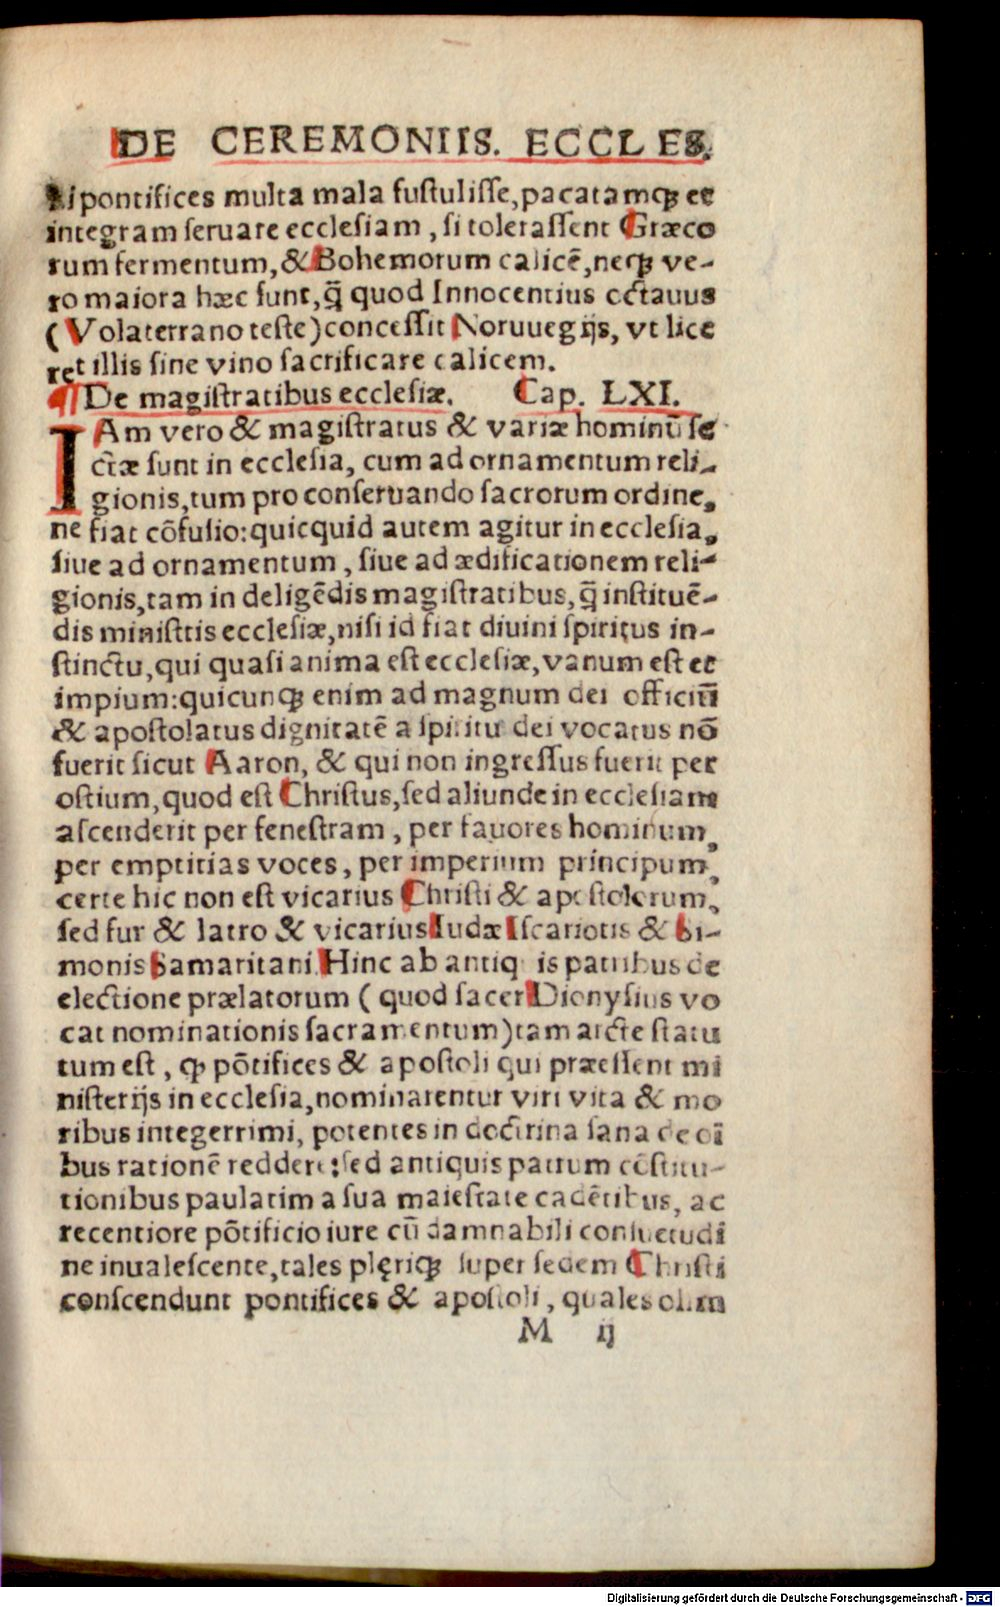 DE CEREMONIIS. ECCLES.
ri pontifices multa mala sustulisse, pacatamqꝫ et
integram seruare ecclesiam, si tolerassent Græco
rum fermentum, & Bohemorum calicē, neqꝫ ve-
ro maiora hæc sunt, q̄ quod Innocentius octauus
(Volaterrano teste) concessit Noruuegijs, vt lice
ret illis sine vino sacrificare calicem.
¶ De magistratibus ecclesiæ. Cap. LXI.
IAm vero & magistratus & variæ hominū se
ctæ sunt in ecclesia, cum ad ornamentum reli-
gionis, tum pro conseruando sacrorum ordine,
ne fiat cōfusio: quicquid autem agitur in ecclesia,
siue ad ornamentum, siue ad ædificationem reli-
gionis, tam in deligēdis magistratibus, q̄ instituē-
dis ministris ecclesiæ, nisi id fiat diuini spiritus in-
stinctu, qui quasi anima est ecclesiæ, vanum est et
impium: quicunqꝫ enim ad magnum dei officiū
& apostolatus dignitatē a spiritu dei vocatus nō
fuerit sicut Aaron, & qui non ingressus fuerit per
ostium, quod est Christus, sed aliunde in ecclesiam
ascenderit per fenestram, per fauores hominum,
per emptitias voces, per imperium principum,
certe hic non est vicarius Christi & apostolorum,
sed fur & latro & vicarius Iudæ Iscariotis & Si-
monis Samaritani. Hinc ab antiq is patribus de
electione prælatorum (quod sacer Dionysius vo
cat nominationis sacramentum) tam arcte statu
tum est, ꝙ pōtifices & apostoli qui præessent mi
nisterijs in ecclesia, nominarentur viri vita & mo
ribus integerrimi, potentes in doctrina sana de oī
bus rationē reddere: sed antiquis patrum cōstitu-
tionibus paulatim a sua maiestate cadētibus, ac
recentiore pōtificio iure cū damnabili consuetudi
ne inualescente, tales plęriqꝫ super sedem Christi
conscendunt pontifices & apostoli, quales olim
M ij
Digitalisierung gefördert durch die Deutsche Forschungsgemeinschaft - DFG